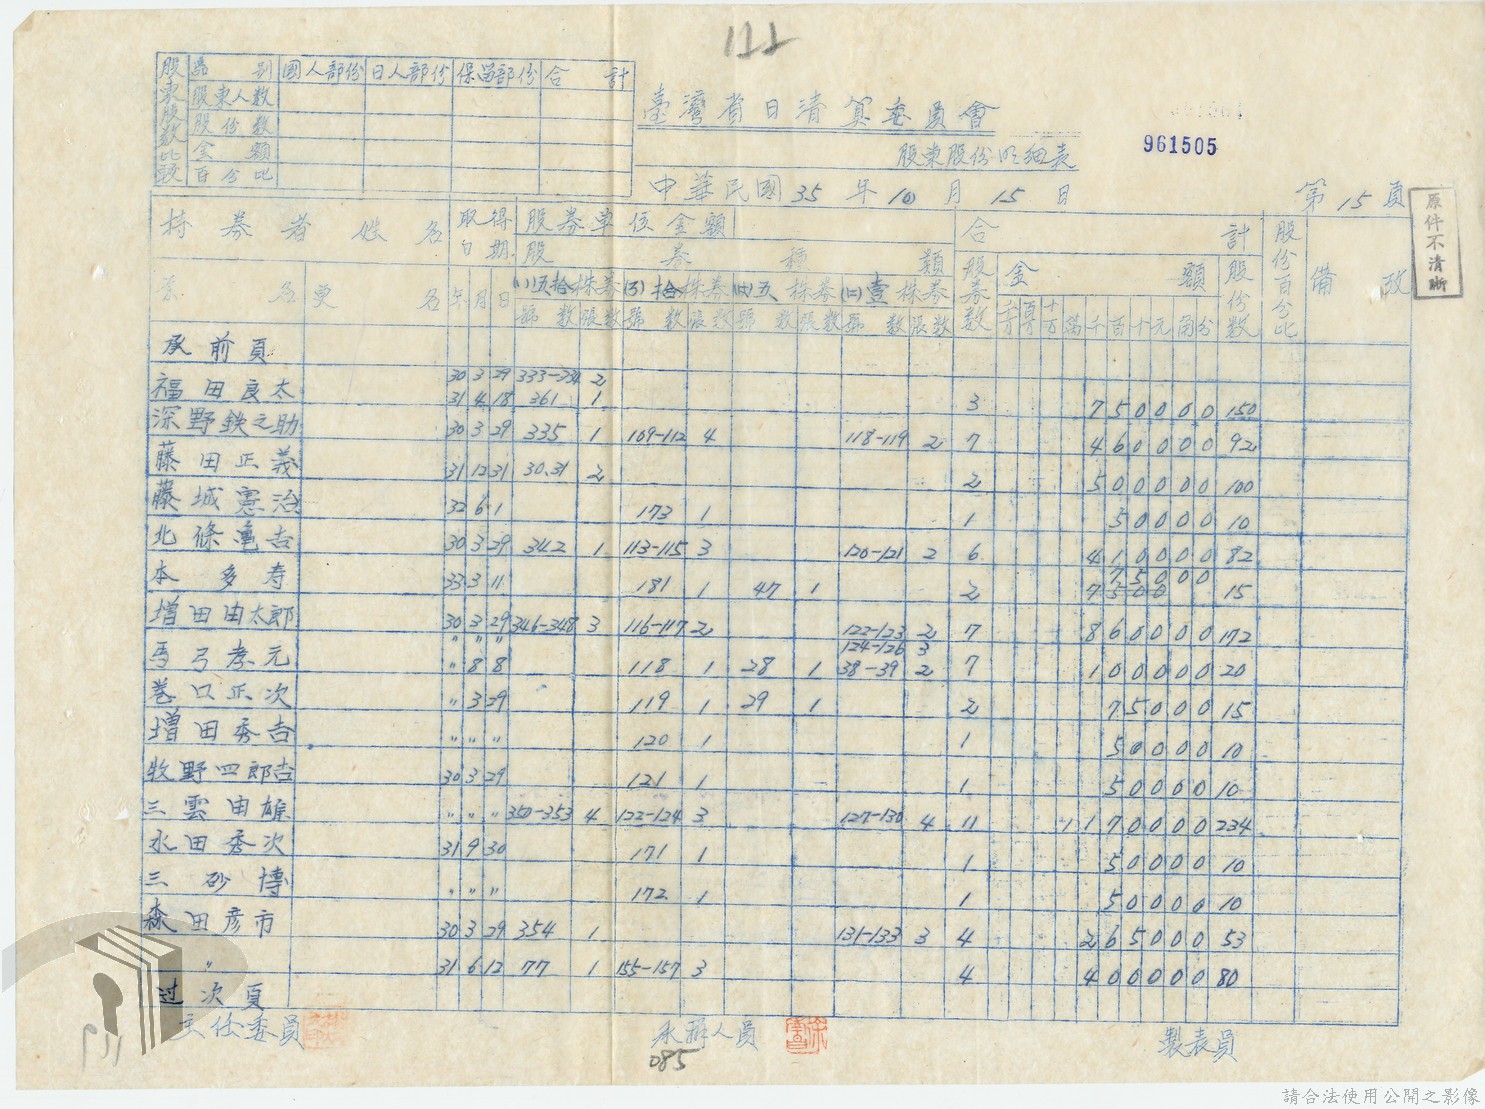 122
股東股數比較
區別 國人部份 日人部份 保留部份 合計
股東人數
股份數
金額
百分比
臺灣省日清算委員會
股東股份明細表
961505
中華民國35年10月15日
第15頁
原件不清晰
持券者姓名 取得日期 股券單位金額 合計 股份百分比 備攷
股券種類 股券數 金額 股份數
票名 更名 年 月 日 五拾株券 拾株券 五株券 壹株券
號數 張數 號數 張數 號數 張數 號數 張數 千万 百万 十万 萬 千 百 十 元 角 分
承前頁
福田良太 30 3 29 333-334 2
31 4 18 361 1 3 750000 150
深野鉄之助 30 3 29 335 1 109-112 4 118-119 2 7 460000 92
藤田正義 31 12 31 30.31 2 2 500000 100
藤城憲治 32 6 1 173 1 1 50000 10
北條亀吉 30 3 29 342 1 113-115 3 120-121 2 6 410000 82
本多寿 33 3 11 181 1 47 1 2 75000 15
増田由太郎 30 3 29 346-348 3 116-117 2 122-123 2 7 860000 172
〃 〃 〃 124-126 3
馬弓孝元 〃 8 8 118 1 28 1 38-39 2 7 100000 20
巻口正次 〃 3 29 119 1 29 1 2 75000 15
増田秀吉 〃 〃 〃 120 1 1 50000 10
牧野四郎吉 30 3 29 121 1 1 50000 10
三雲由雄 〃 〃 〃 350-353 4 122-124 3 127-130 4 11 1170000 234
永田秀次 31 9 30 171 1 1 50000 10
三砂博 〃 〃 〃 172 1 1 50000 10
森田彦市 30 3 29 354 1 131-133 3 4 265000 53
〃 31 6 12 77 1 155-157 3 4 400000 80
过次頁
主任委員 承辦人員 製表員
085
請合法使用公開之影像